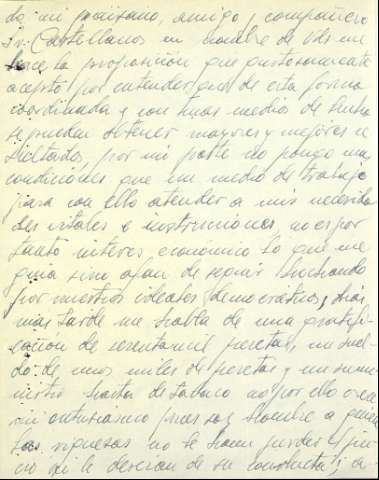 do; mi paisano, amigo y compañero
Sr. Castellanos en nombre de Vds me
hace la proposición que gustosamente
acepto por entender que de esta forma
coordinada y con mas medios de lucha
se puedan obtener mayores y mejores re
sultados, por mi parte no pongo mas
condiciones que un medio de trabajo
para con ello atender a mis necesida
des vitales e instrucciones, no es por
tanto interes económico lo que me
guia sino afan de seguir luchando
por nuestros ideales democráticos, dias
mas tarde me habla de una gratifi
cación de sesenta mil pesetas, un suel
do de unos miles de pesetas y un sumi
nistro hasta de tabaco no por ello crea
mi entusiasmo pues soy hombre a quien
las riquezas no le hacen perder el jui
cio ni le desvian de su conducta; a-